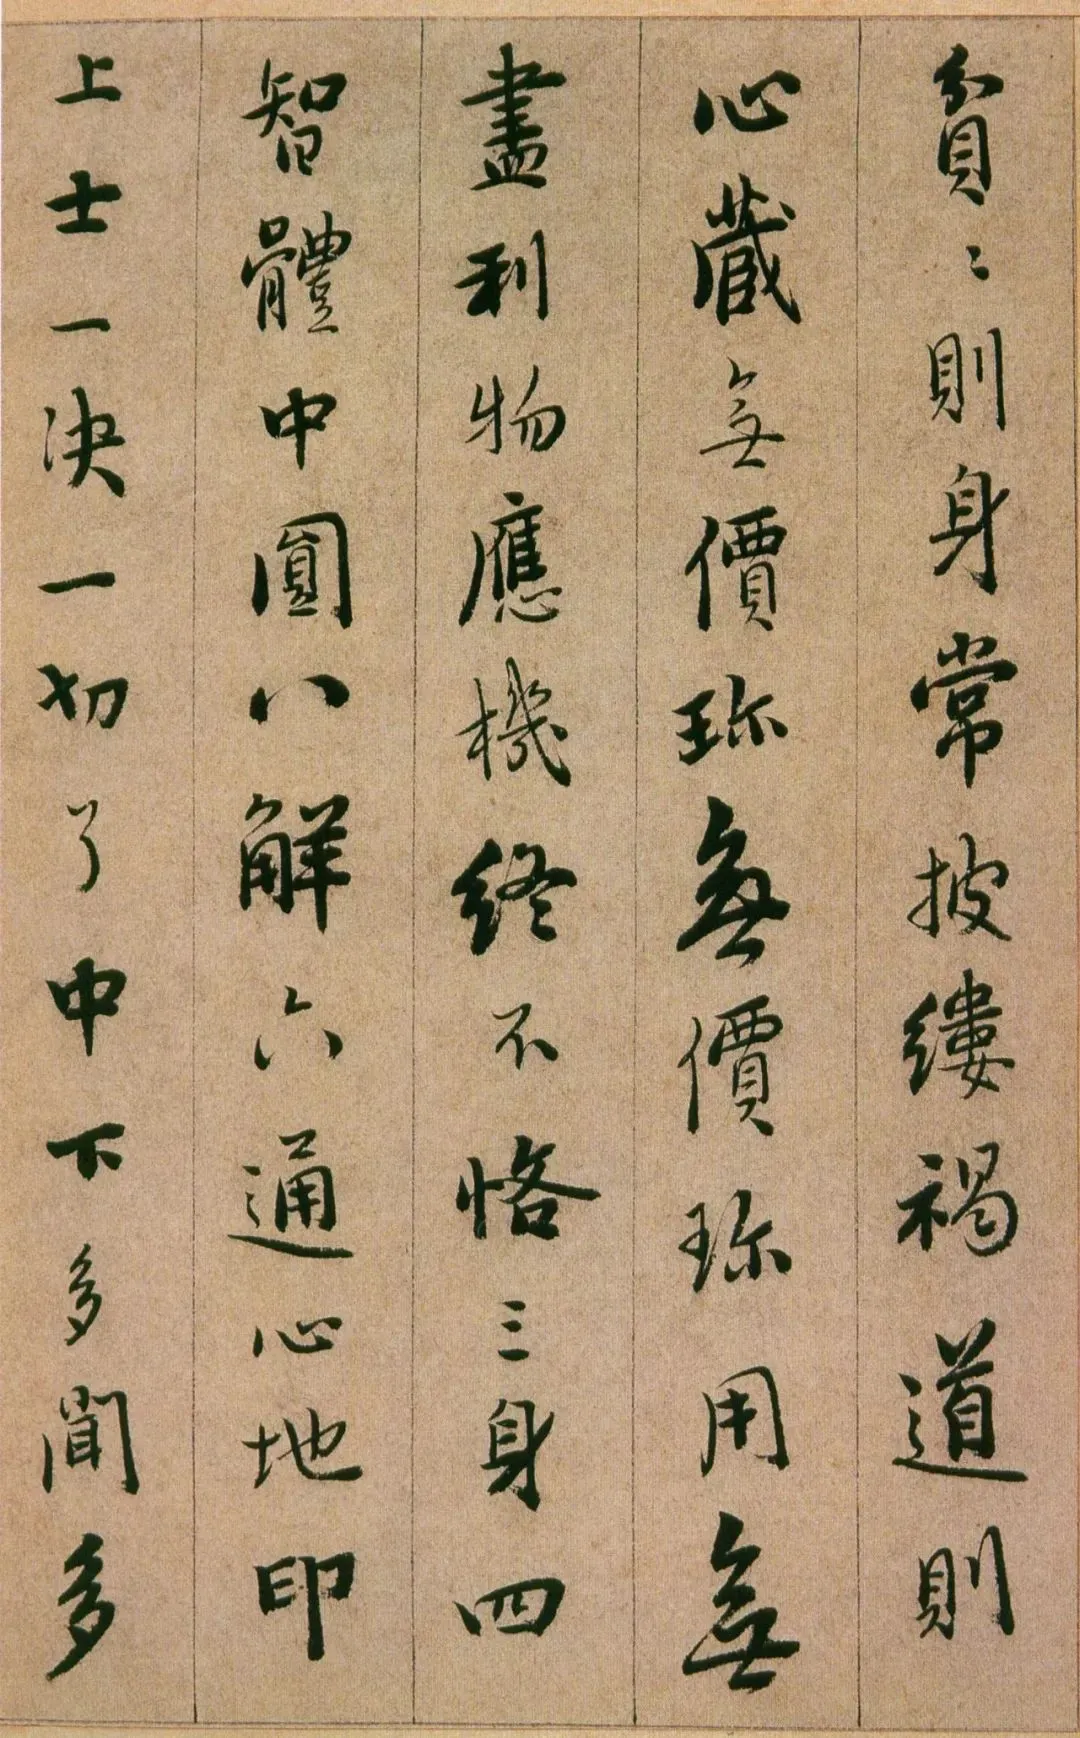 貧〻則身常披縷褐道則
心藏無價珎無價珎用無
盡利物應機終不恡三身四
智體中圓八解六通心地印
上士一決一切了中下多聞多